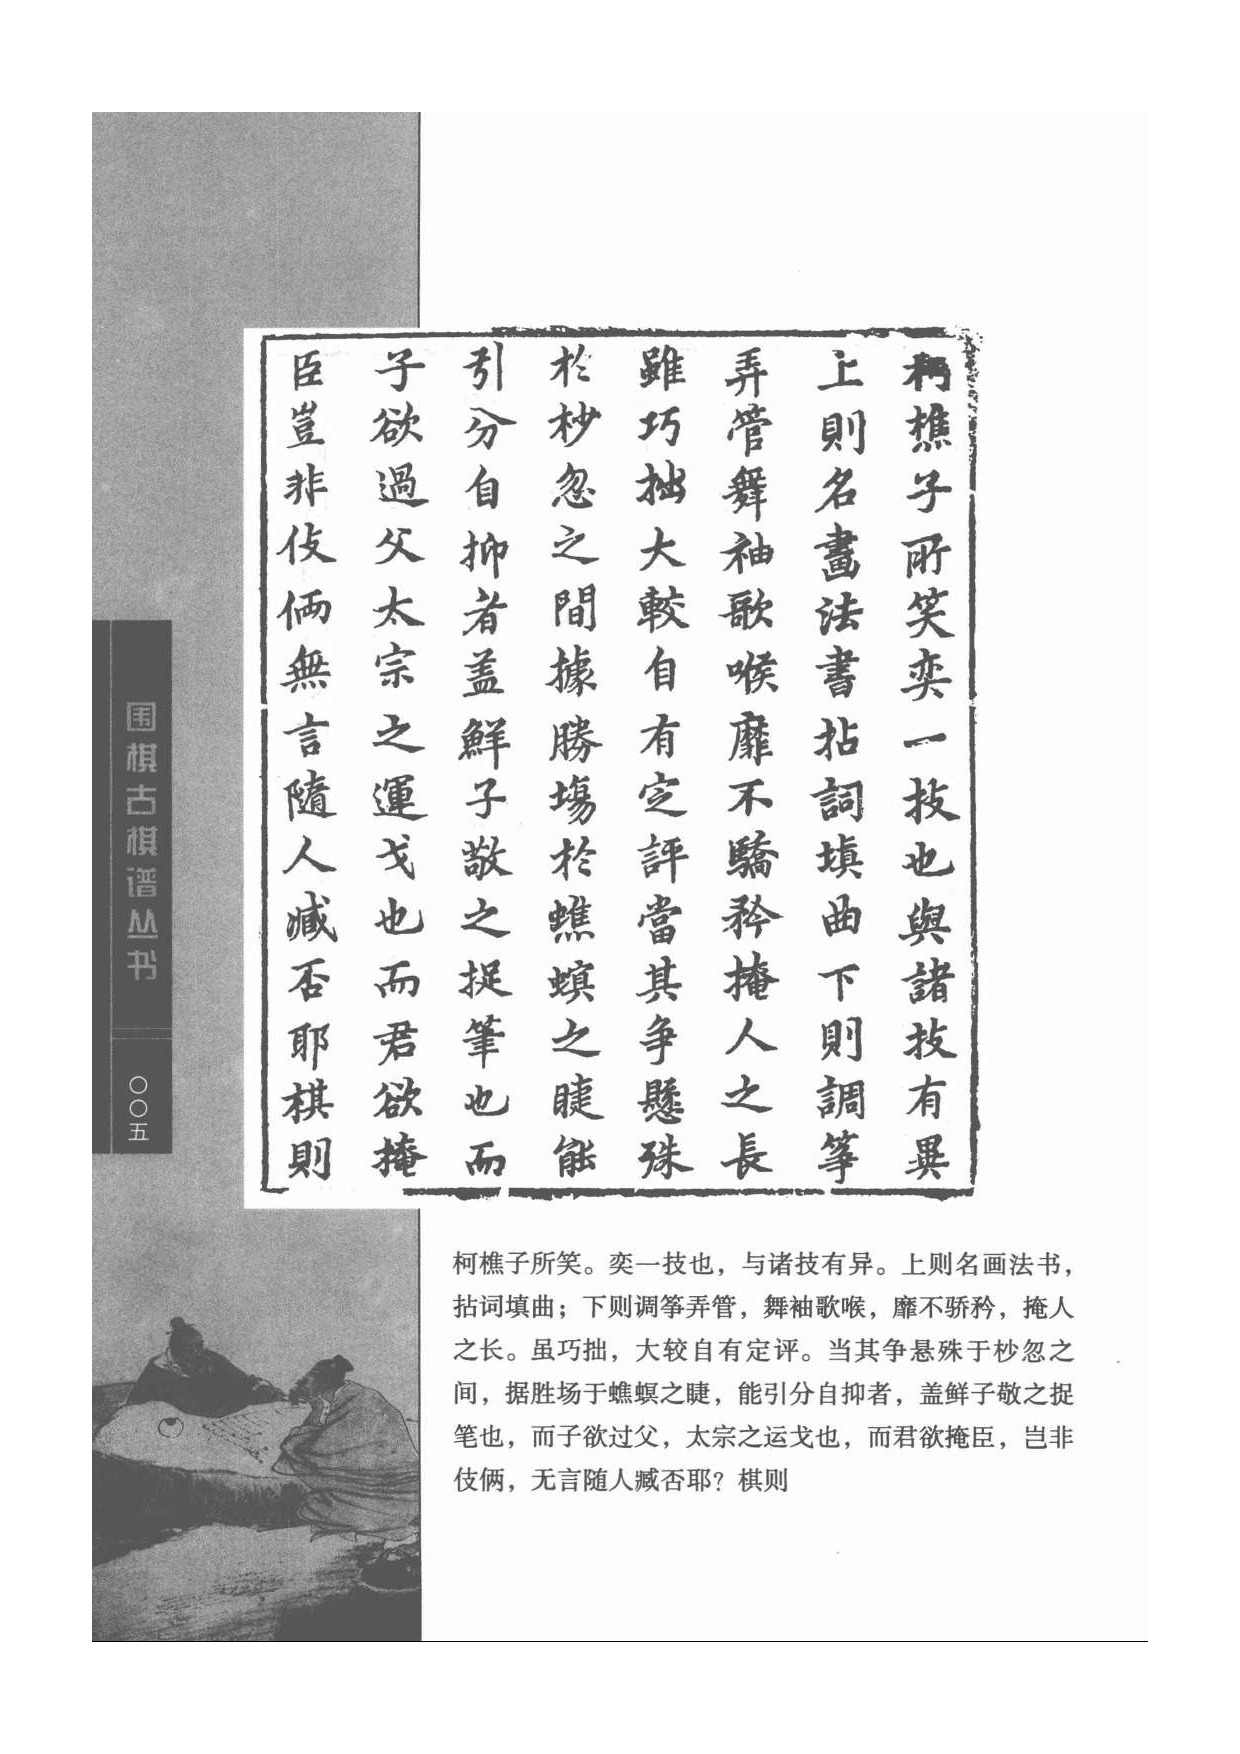 柯樵子所笑奕一技也與諸技有異
上則名畫法書拈詞填曲下則調筝
弄管舞袖歌喉靡不驕矜掩人之長
雖巧拙大較自有定評當其争懸殊
於杪忽之間據勝塲於蟭螟之睫能
引分自抑者盖鮮子敬之捉筆也而
子欲過父太宗之運戈也而君欲掩
臣豈非伎俩無言隨人臧否耶棋則
围棋古棋谱丛书
〇〇五
柯樵子所笑。奕一技也，与诸技有异。上则名画法书，
拈词填曲；下则调筝弄管，舞袖歌喉，靡不骄矜，掩人
之长。虽巧拙，大较自有定评。当其争悬殊于杪忽之
间，据胜场于蟭螟之睫，能引分自抑者，盖鲜子敬之捉
笔也，而子欲过父，太宗之运戈也，而君欲掩臣，岂非
伎俩，无言随人臧否耶？棋则